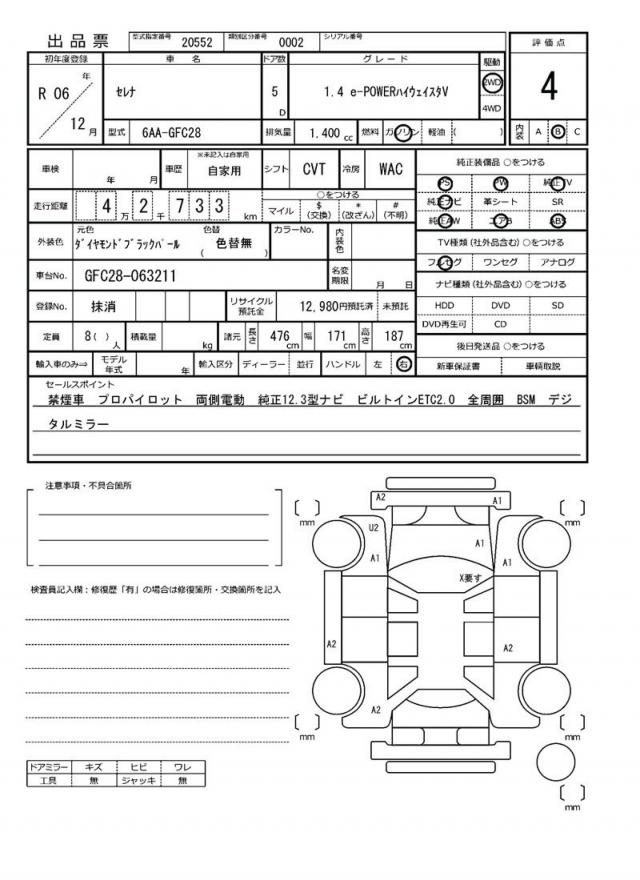 出品票 型式指定番号 20552 類別区分番号 0002 シリアル番号
評価点
4
内装 A B C
初年度登録 車名 ドア数 グレード 駆動
R 06 年 12 月
セレナ 5 D 1.4 e-POWERハイウェイスタV 2WD 4WD
型式 6AA-GFC28 排気量 1,400 cc 燃料 ガソリン 軽油 ( )
車検 年 月 車歴 ※未記入は自家用 自家用 シフト CVT 冷房 WAC
走行距離 4 万 2 千 7 3 3 km
○をつける
マイル $ (交換) * (改ざん) # (不明)
外装色 元色 ダイヤモンドブラックパール 色替 色替無 ( ) カラーNo. 内装色
車台No. GFC28-063211 名変期限 月 日
登録No. 抹消 リサイクル預託金 12,980円預託済 未預託
定員 8( ) 人 積載量 kg 諸元 長さ 476 cm 幅 171 cm 高さ 187 cm
輸入車のみ⇒ モデル年式 年 輸入区分 ディーラー 並行 ハンドル 左 右
純正装備品 ○をつける
PS PW 純正TV
純正ナビ 革シート SR
純正AW エアB ABS
TV種類(社外品含む)○をつける
フルセグ ワンセグ アナログ
ナビ種類(社外品含む)○をつける
HDD DVD SD
DVD再生可 CD
後日発送品 ○をつける
新車保証書 車輌取説
セールスポイント
禁煙車 プロパイロット 両側電動 純正12.3型ナビ ビルトインETC2.0 全周囲 BSM デジ
タルミラー
注意事項・不具合箇所
検査員記入欄：修復歴「有」の場合は修復箇所・交換箇所を記入
ドアミラー キズ ヒビ ワレ
工具 無 ジャッキ 無
A2 A1
mm mm
U2
A1 A1 A1
X要す
A2 A2
A2
mm mm
mm